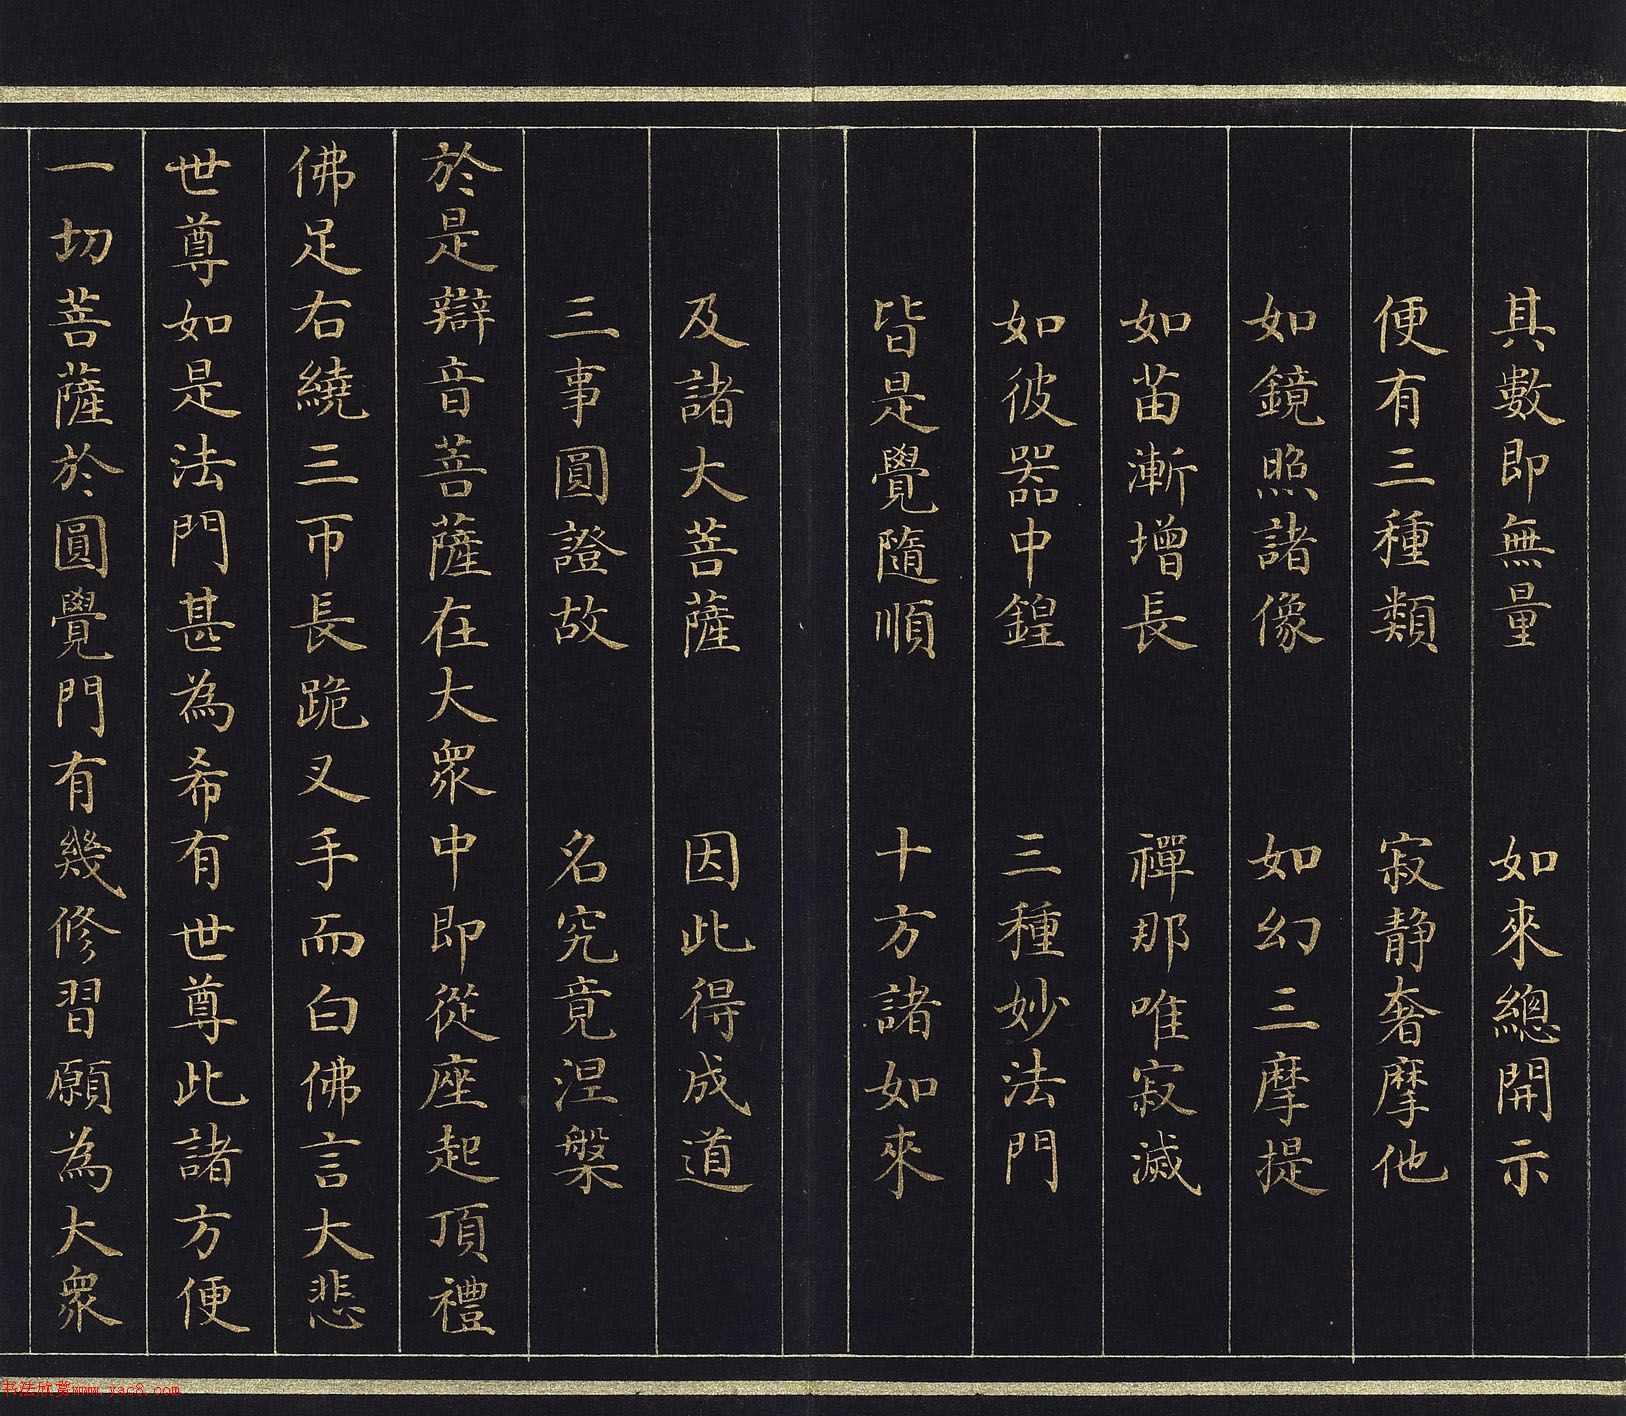 其數即無量 如來總開示
便有三種類 寂静奢摩他
如鏡照諸像 如幻三摩提
如苗漸增長 禪那唯寂滅
如彼器中鍠 三種妙法門
皆是覺隨順 十方諸如來
及諸大菩薩 因此得成道
三事圓證故 名究竟涅槃
於是辯音菩薩在大衆中即從座起頂禮
佛足右繞三帀長跪叉手而白佛言大悲
世尊如是法門甚為希有世尊此諸方便
一切菩薩於圓覺門有幾修習願為大衆
书法欣赏www.yac8.com